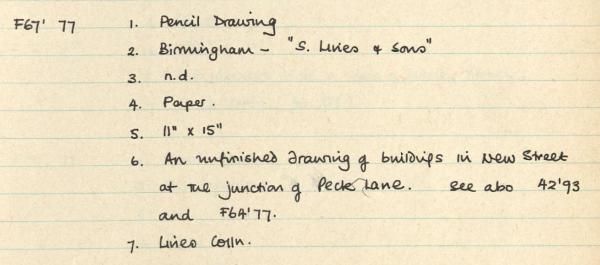 F67' 77 1. Pencil Drawing
2. Birmingham - "S. Lines & Sons"
3. n.d.
4. Paper.
5. 11" x 15"
6. An unfinished drawing of buildings in New Street
at the junction of Peck Lane. See also 42'93
and F64'77.
7. Lines Colln.